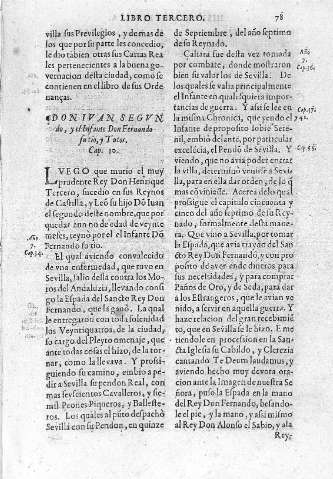 LIBRO TERCERO. 78
villa sus Previlegios, y demas de
los que por su parte les concedio,
le dio tabien otras sus Cartas Rea
les pertenecientes a la buena go-
vernacion desta ciudad, como se
contienen en el libro de sus Orde
nanças.
DON IVAN SEGVN
do, y el Infante Don Fernando
su tio, y Tutor.
Cap. 30.
LVEGO que murio el muy
prudente Rey Don Henrique
Tercero, sucedio en sus Reynos
de Castilla, y Leõ su hijo Dõ Iuan
el segundo deste nombre, que por
quedar
no de edad de veynte
meses, reynò por el Infante Dõ
Fernando su tio.
Año
7.
Cap. 34.
El qual aviendo convalecido
de vna enfermedad, que tuvo en
Sevilla, salio della contra los Mo-
ros del Andaluzia, llevando consi
go la Espada del Sancto Rey Don
Fernando, que la ganò. La qual
le entregaron con toda solenidad
los Veyntiquatros de la ciudad,
so cargo del Pleyto omenaje, que
ante todas cosas el hizo, de la tor-
nar, como la llevava. Y prosi-
guiendo su camino, embio a pe-
dir a Sevilla su pendon Real, con
mas seyscientos Cavalleros, y sie-
mil Peones Piqueros, y Balleste-
ros. Los quales al pũto despachò
Sevilla con su Pendon, en quinze
de Septiembre, del año septimo
de su Reynado.
Cañara fue desta vez tomada
por combate, donde mostraron
bien su valor los de Sevilla. De
los quales se valia principalmente
el Infante en qualesquiera impor-
tancias de guerra. Y assi se lee en
la misma Chronica, que sendo el
Infante de proposito sobre Sete-
nil, embiò delante, por particular
excelẽcia, el Pendõ de Sevilla. Y
viendo, que no avia poder entrar
la villa, determinò venirse a Sevi
lla, para en ella dar orden, de lo q̃
mas cõviniesse. Acerca de lo qual
prosigue el capitulo cincuenta y
cinco del año septimo de su Rey-
nado, formalmente desta mane-
ra. Que vino a Sevilla, por tornar
la Espada, que avia traydo del San
cto Rey Don Fernando, y con pro
posito de aver ende dineros para
sus necessidades, y para comprar
Paños de Oro, y de Seda, para dar
a los Estrangeros, que le avian ve
nido, a servir en aquella guerra. Y
haze relacion del gran recebimiẽ
to, que en Sevilla se le hizo. E me
tiendole en procession en la San-
cta Iglesia su Cabildo, y Clerezia
cantando Te Deum laudamus, y
aviendo hecho muy devota ora-
cion ante la Imagen de nuestra Se
ñora, puso la Espada en la mano
del Rey Don Fernando, besando-
le el pie, y la mano, y assi mismo
al Rey Don Alonso el Sabio, y a la
Rey-
Año
7.
Cap. 36.
Cap. 37.
y 42.